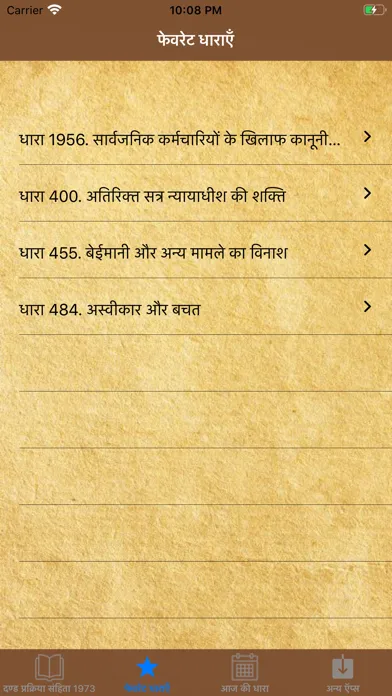 Carrier 10:08 PM
फेवरेट धाराएँ
धारा 1956. सार्वजनिक कर्मचारियों के खिलाफ कानूनी...
धारा 400. अतिरिक्त सत्र न्यायाधीश की शक्ति
धारा 455. बेईमानी और अन्य मामले का विनाश
धारा 484. अस्वीकार और बचत
दण्ड प्रक्रिया संहिता 1973 आज की धारा अन्य ऍप्स